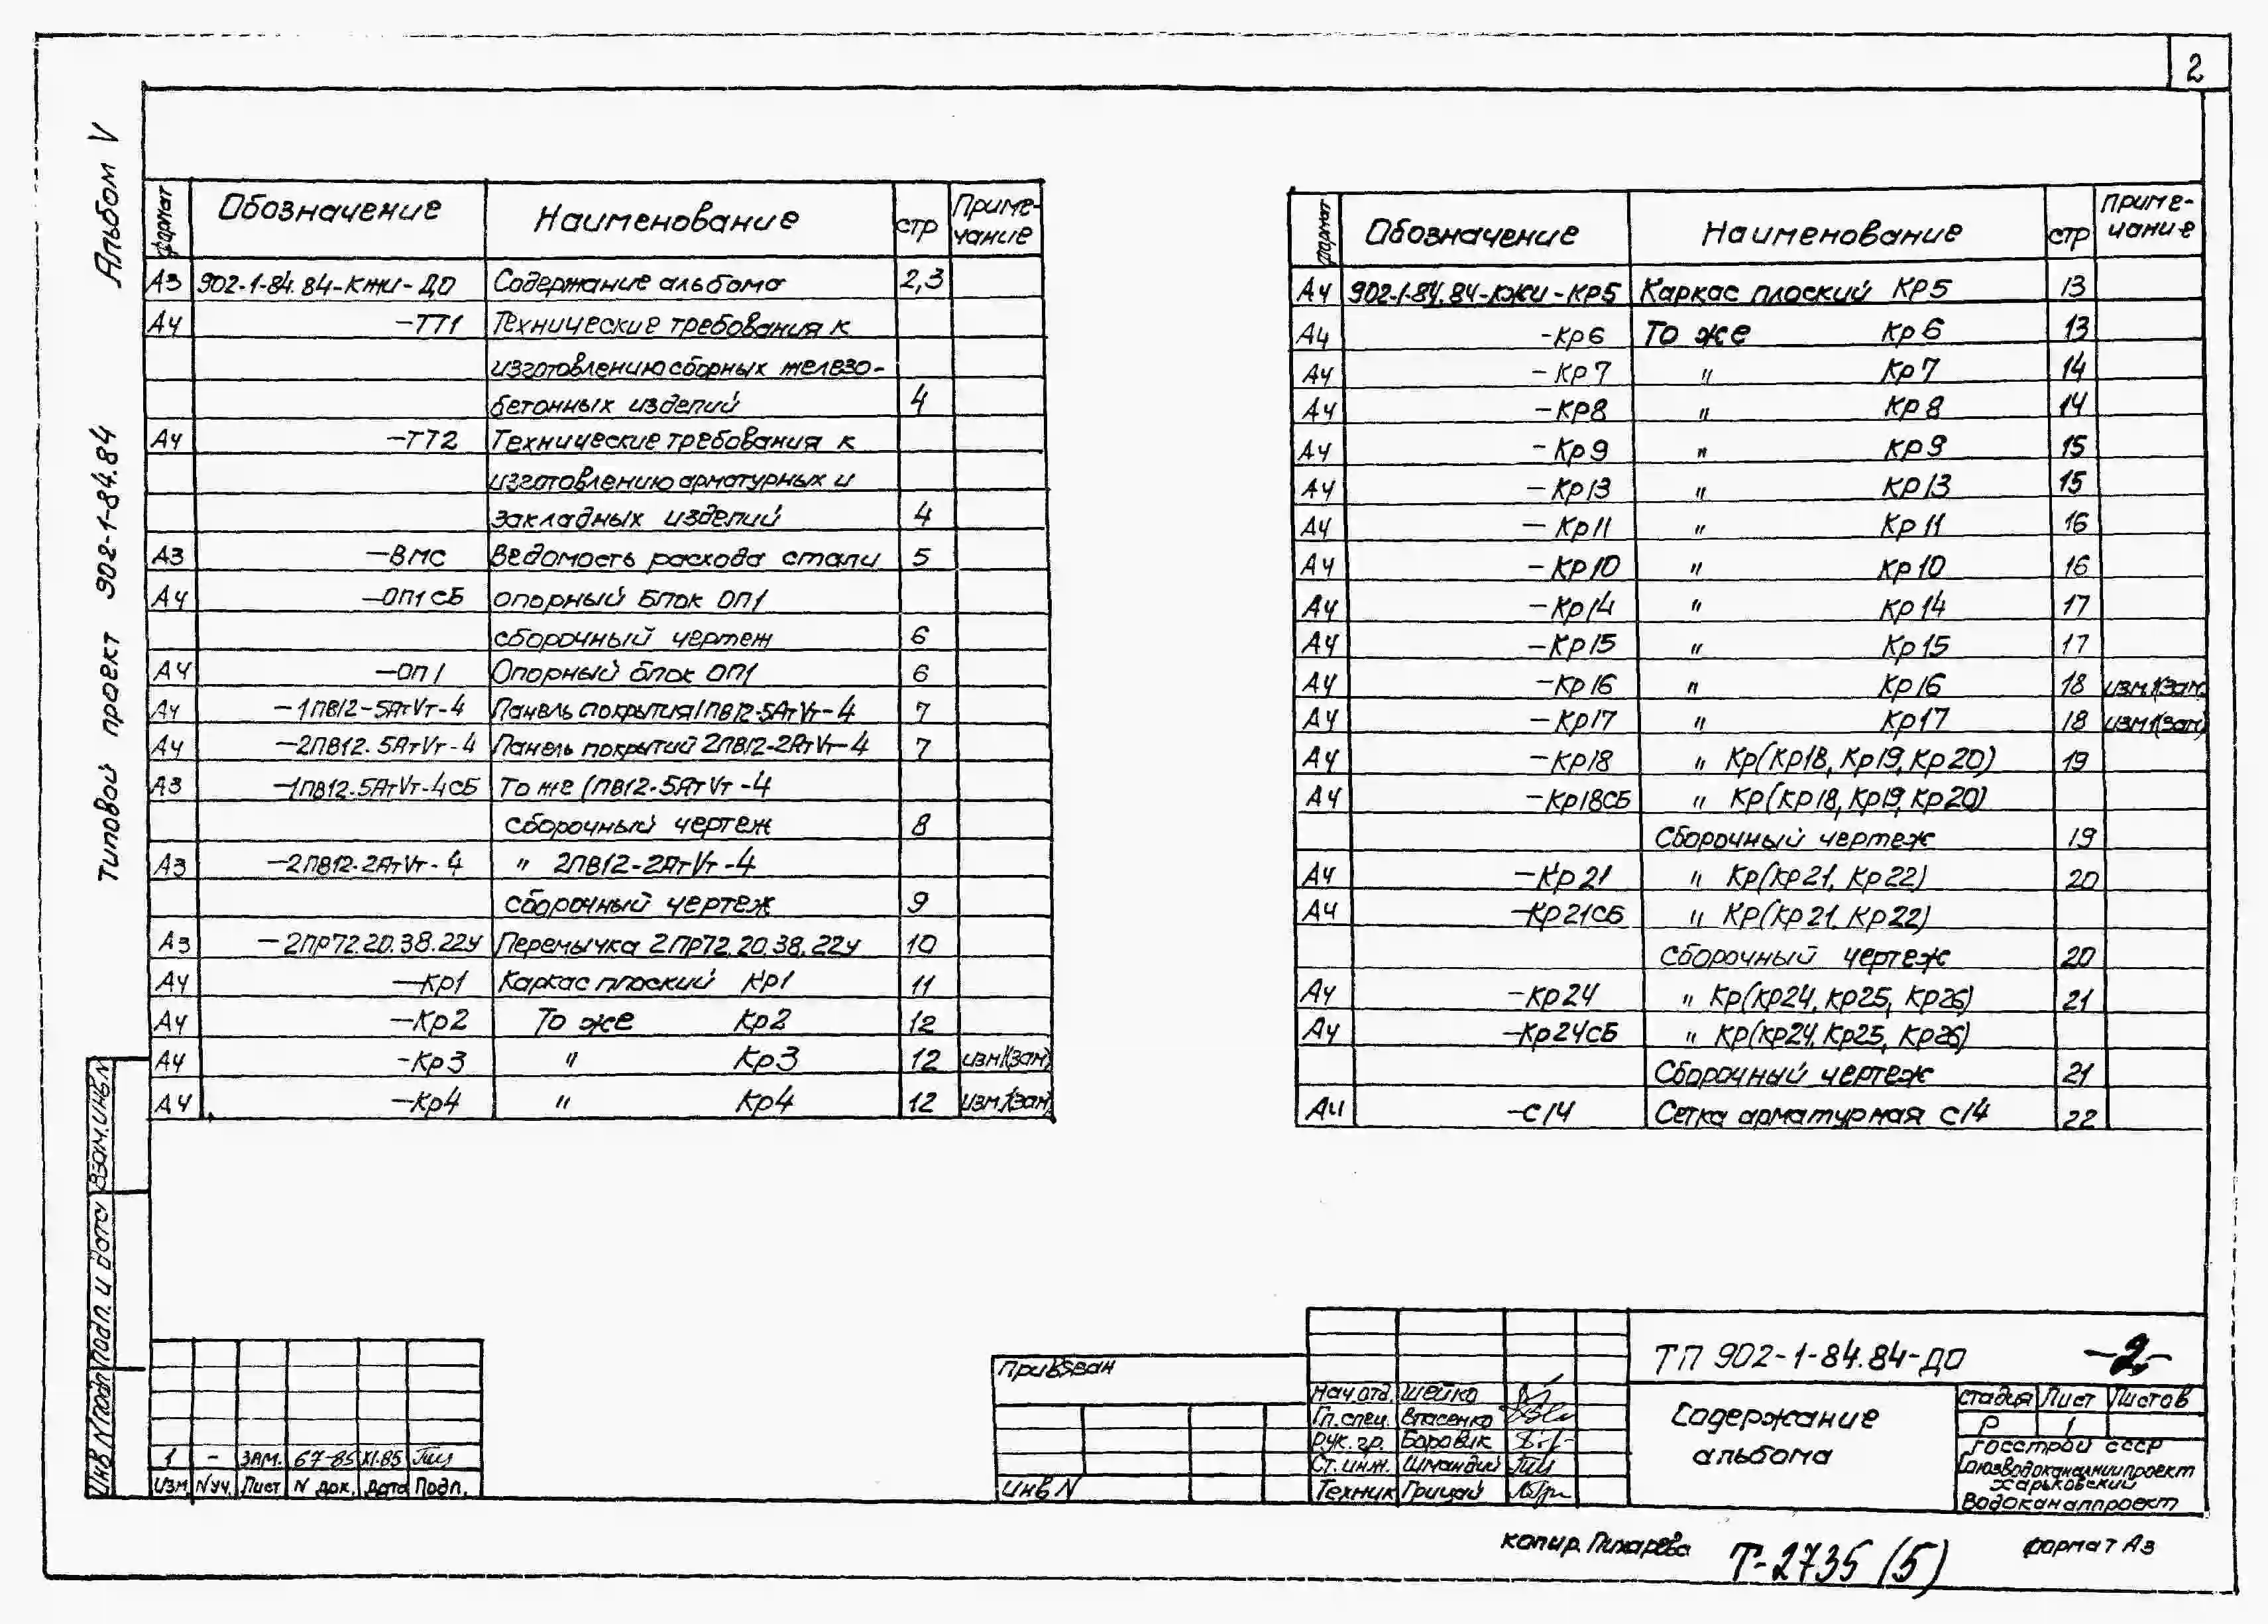 2
Альбом V
Типовой проект 902-1-84.84
Формат Обозначение Наименование стр Приме-
чание
А3 902-1-84.84-КЖИ-ДО Содержание альбома 2,3
А4 -ТТ1 Технические требования к
изготовлению сборных железо-
бетонных изделий 4
А4 -ТТ2 Технические требования к
изготовлению арматурных и
закладных изделий 4
А3 -ВМС Ведомость расхода стали 5
А4 -ОП1СБ Опорный блок ОП1
сборочный чертеж 6
А4 -ОП1 Опорный блок ОП1 6
А4 -1ПВ12-5АтVт-4 Панель покрытия 1ПВ12-5АтVт-4 7
А4 -2ПВ12.5АтVт-4 Панель покрытий 2ПВ12-2АтVт-4 7
А3 -1ПВ12.5АтVт-4СБ То же 1ПВ12-5АтVт-4
сборочный чертеж 8
А3 -2ПВ12.2АтVт-4 " 2ПВ12-2АтVт-4
сборочный чертеж 9
А3 -2ПР72.20.38.22у Перемычка 2ПР72.20.38.22у 10
А4 -Кр1 Каркас плоский Кр1 11
А4 -Кр2 То же Кр2 12
А4 -Кр3 " Кр3 12 изм1(зам)
А4 -Кр4 " Кр4 12 изм.1(зам)
Формат Обозначение Наименование стр Приме-
чание
А4 902-1-84.84-КЖИ-КР5 Каркас плоский КР5 13
А4 -Кр6 То же Кр6 13
А4 -КР7 " Кр7 14
А4 -КР8 " КР8 14
А4 -Кр9 " КР9 15
А4 -Кр13 " КР13 15
А4 -Кр11 " Кр11 16
А4 -КР10 " Кр10 16
А4 -Кр14 " Кр14 17
А4 -Кр15 " Кр15 17
А4 -Кр16 " Кр16 18 изм.1(зам.
А4 -Кр17 " Кр17 18 изм1(зам)
А4 -Кр18 " Кр(Кр18, Кр19, Кр20) 19
А4 -Кр18СБ " Кр(Кр18, Кр19, Кр20)
Сборочный чертеж 19
А4 -Кр21 " Кр(Кр21, Кр22) 20
А4 -Кр21СБ " Кр(Кр21, Кр22)
Сборочный чертеж 20
А4 -Кр24 " Кр(Кр24, Кр25, Кр26) 21
А4 -Кр24СБ " Кр(Кр24, Кр25, Кр26)
Сборочный чертеж 21
А4 -С14 Сетка арматурная С14 22
Взам.инв.N
Подп. и дата
Инв.N подл
1 - ЗАМ. 67-85 XI.85
Изм N уч. Лист N док. Дата Подп.
Привязан
Инв N
Нач.отд. Шейко
Гл.спец. Власенко
Рук.гр. Боровик
Ст.инж. Шмандий
Техник Грицай
ТП 902-1-84.84-ДО -2-
Содержание
альбома
стадия Лист Листов
Р 1
Госстрой СССР
Союзводоканалниипроект
Харьковский
Водоканалпроект
копир. Пихарева
Т-2735 (5)
формат А3